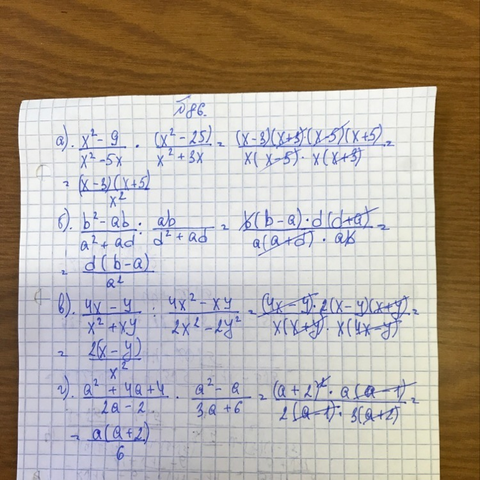 №86.
а). \frac{x²-9}{x²-5x} · \frac{(x²-25)}{x²+3x} = \frac{(x-3)(x+3)(x-5)(x+5)}{x(x-5)·x(x+3)} =
= \frac{(x-3)(x+5)}{x²}
б). \frac{b²-ab}{a²+ad} : \frac{ab}{d²+ad} = \frac{b(b-a)·d(d+a)}{a(a+d)·ab} =
= \frac{d(b-a)}{a²}
в). \frac{4x-y}{x²+xy} : \frac{4x²-xy}{2x²-2y²} = \frac{(4x-y)·2(x-y)(x+y)}{x(x+y)·x(4x-y)} =
= \frac{2(x-y)}{x²}
г). \frac{a²+4a+4}{2a-2} · \frac{a²-a}{3a+6} = \frac{(a+2)²·a(a-1)}{2(a-1)·3(a+2)} =
= \frac{a(a+2)}{6}